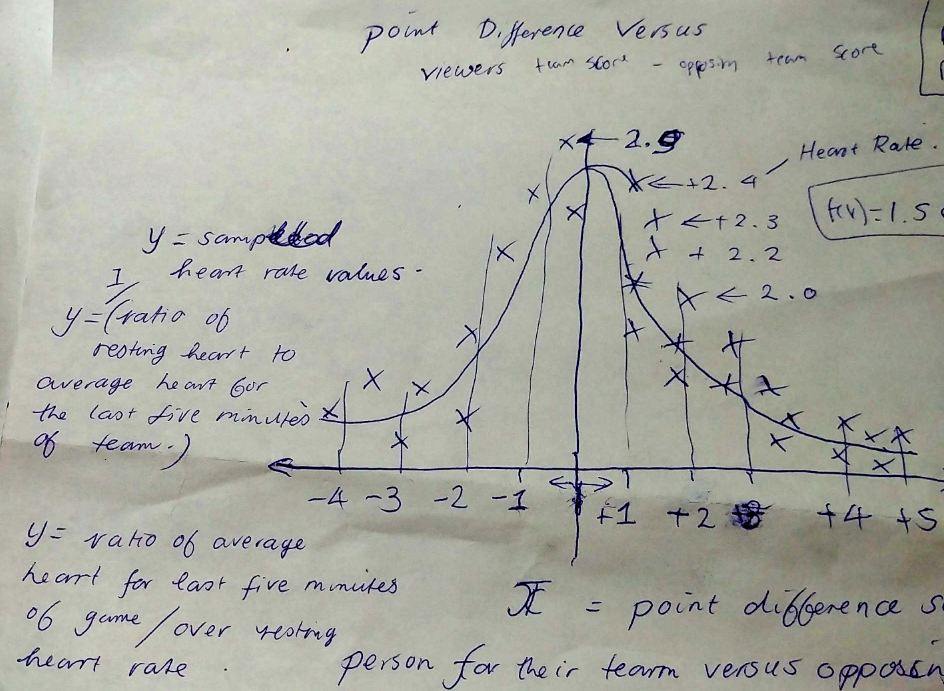 point Difference Versus
viewers team score - opposin team score
2.9
Heart Rate.
+2.4
f(x)=1.5
+2.3
+2.2
2.0
y = sampled
heart rate values.
I
y=(ratio of
resting heart to
average heart for
the last five minutes
of team.)
-4 -3 -2 -1 +1 +2 +3 +4 +5
y= ratio of average
heart for last five minutes
of game/over resting
heart rate.
x = point difference s
person for their tearm versus opposin